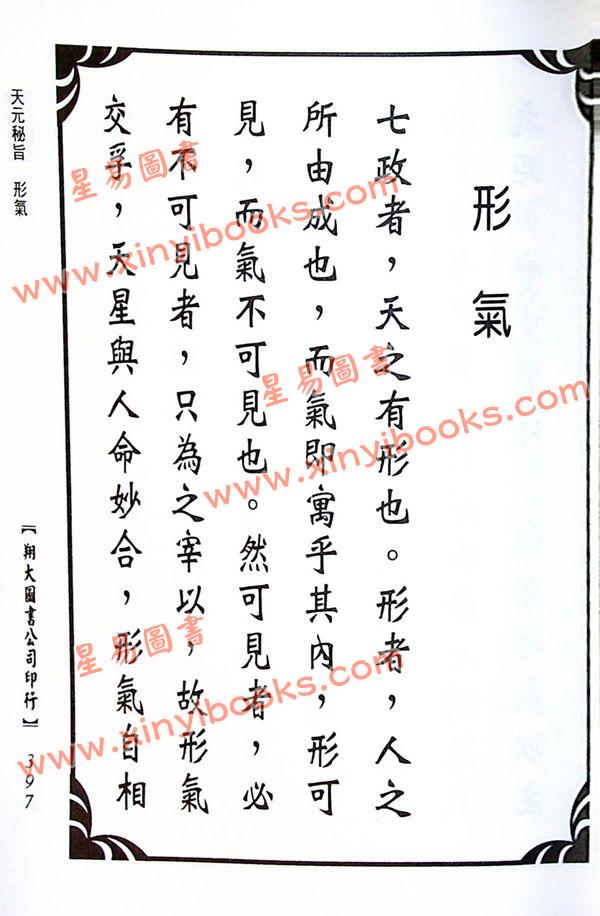 形氣
七政者，天之有形也。形者，人之
所由成也，而氣即寓乎其內，形可
見，而氣不可見也。然可見者，必
有不可見者，只為之宰以，故形氣
交孚，天星與人命妙合，形氣自相
天元秘旨 形氣
【翔大圖書公司印行】 397
星易圖書
www.xinyibooks.com
星易圖書
www.xinyibooks.com
星易圖書
www.xinyibooks.com